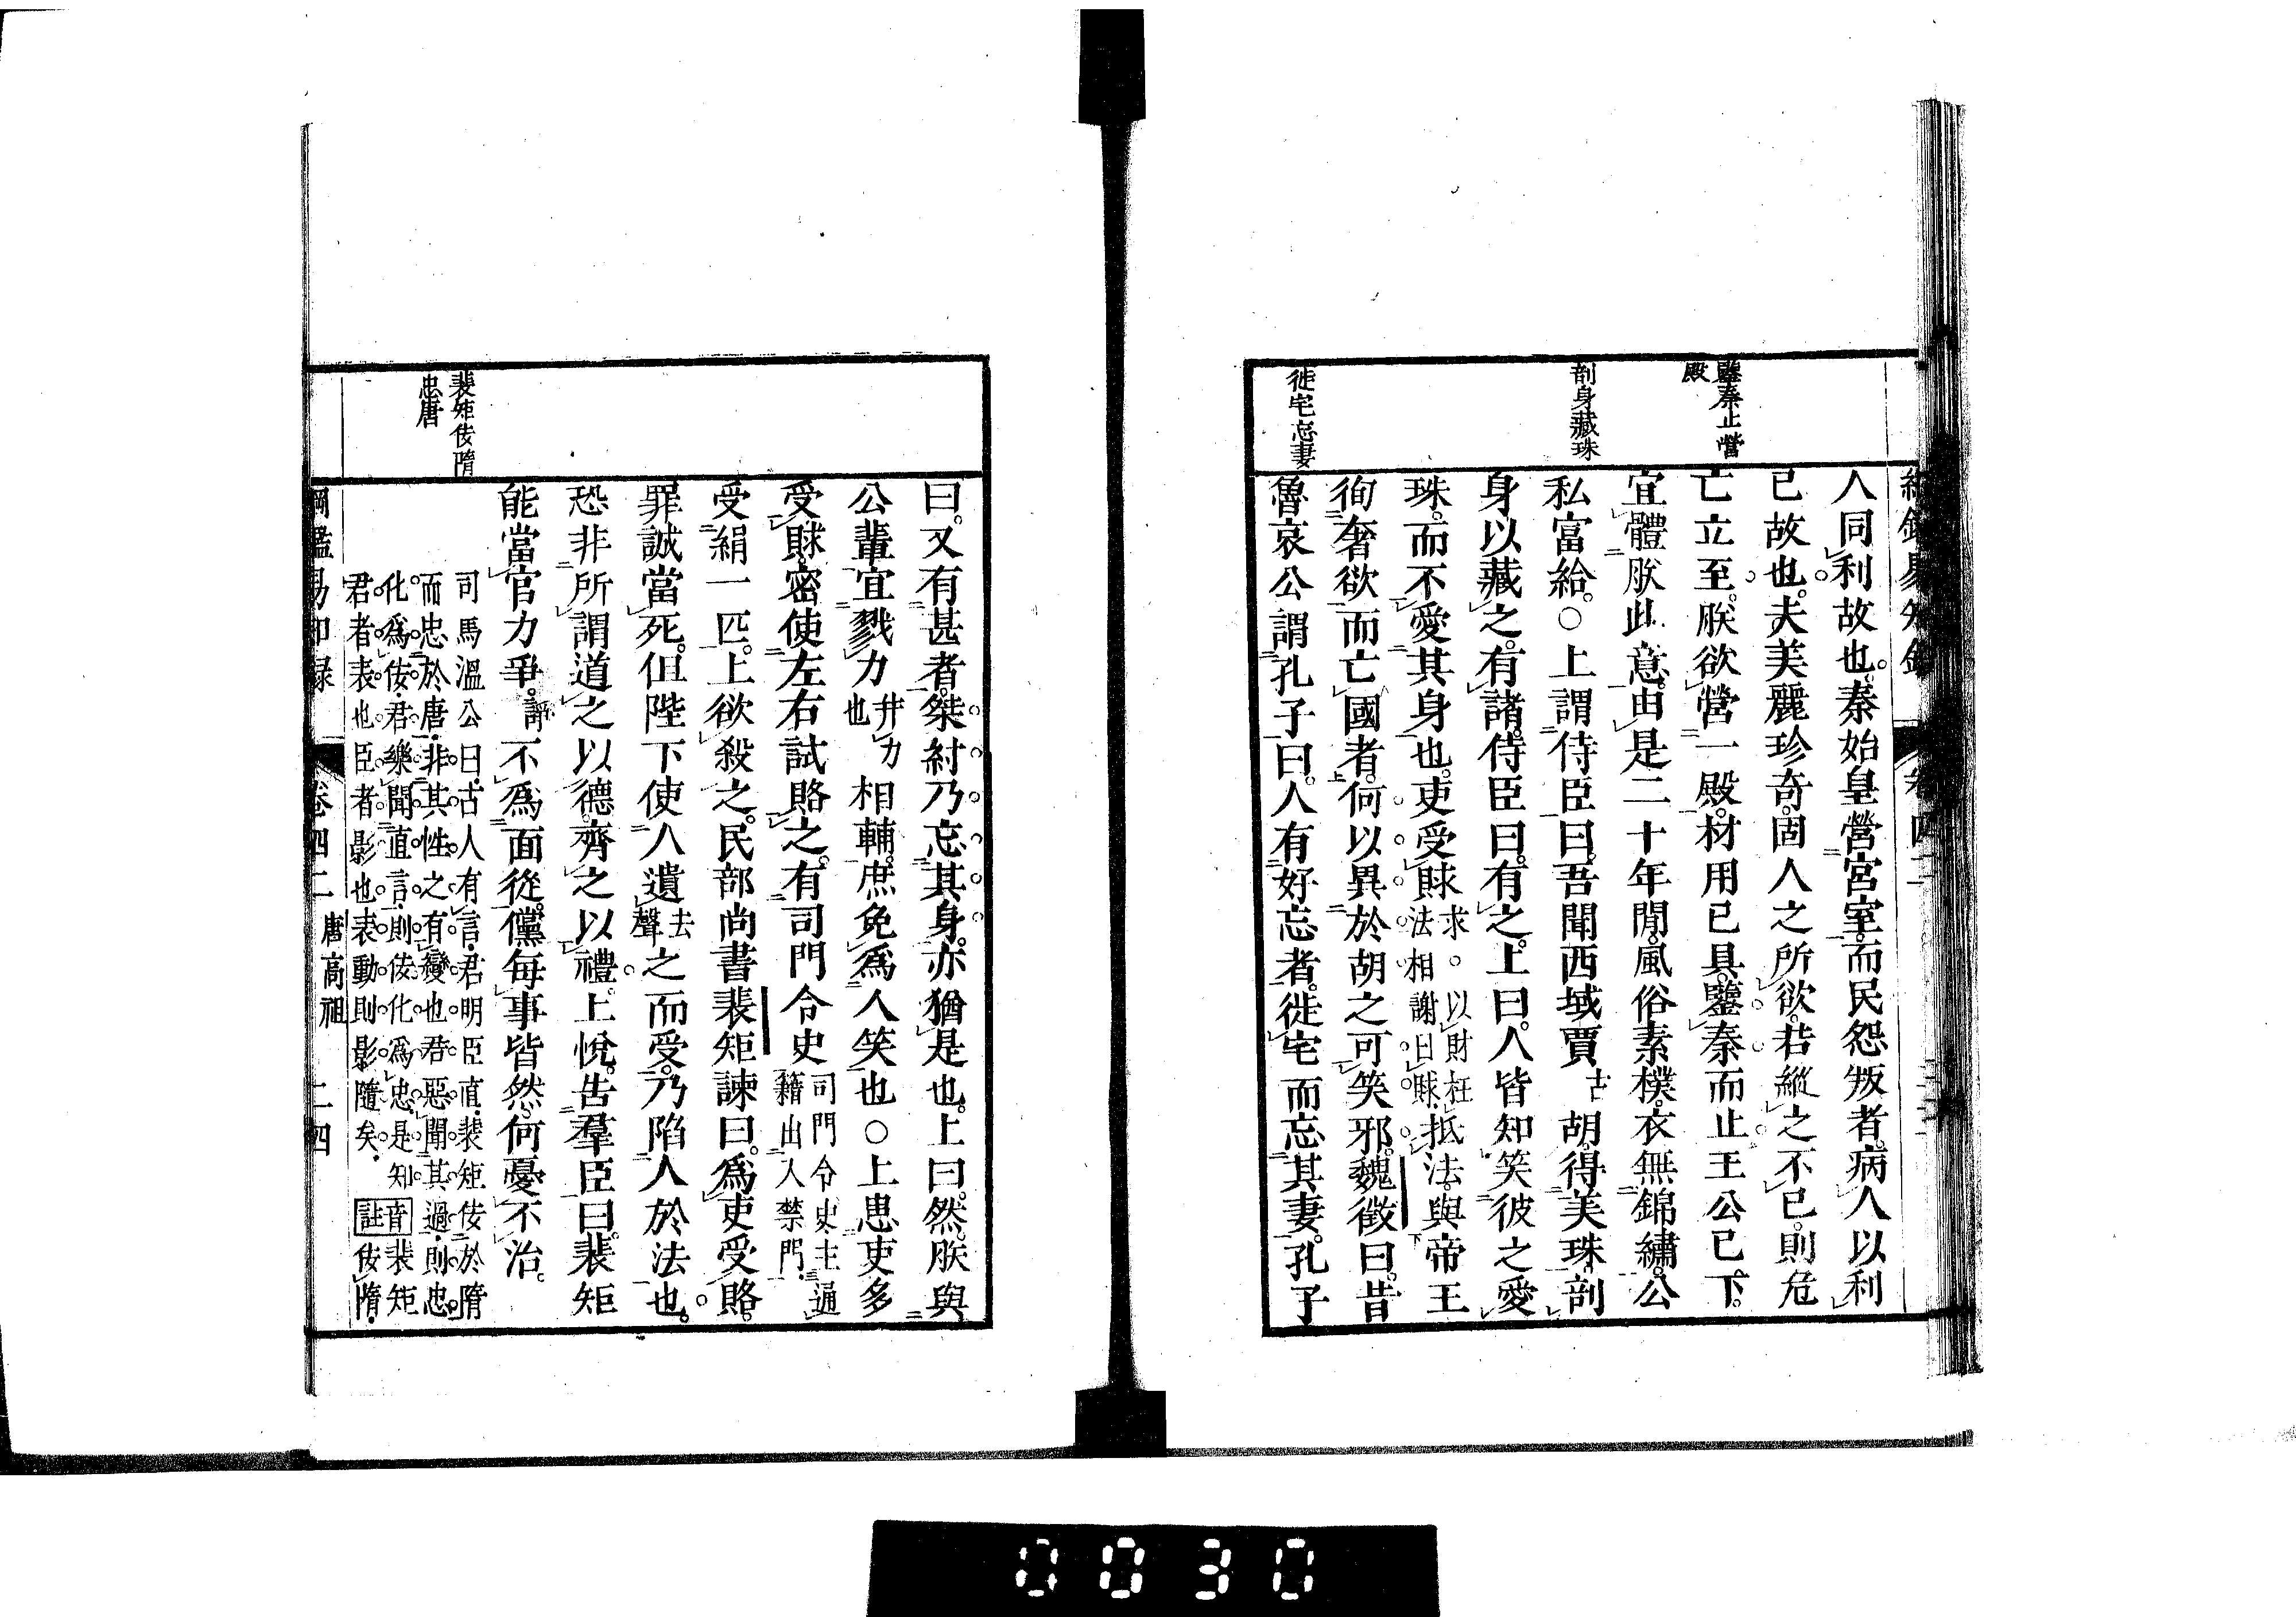 綱鑑易知錄 卷四二
鑒秦止營
殿
剖身藏珠
徙宅忘妻
人同利故也。秦始皇營宮室。而民怨叛者。病人以利
己故也。夫美麗珍奇。固人之所欲。若縱之不已。則危
亡立至。朕欲營一殿。材用已具。鑒秦而止。王公已下。
宜體朕此意。由是二十年間。風俗素樸。衣無錦繡。公
私富給。○上謂侍臣曰。吾聞西域賈古胡。得美珠。剖
身以藏之。有諸。侍臣曰。有之。上曰。人皆知笑彼之愛
珠。而不愛其身也。吏受賕求。以財枉法相謝曰賕。抵法。與帝王
徇奢欲而亡國者。何以異於胡之可笑邪。魏徵曰。昔
魯哀公謂孔子曰。人有好忘者。徙宅而忘其妻。孔子
裴矩佞隋
忠唐
曰。又有甚者。桀紂乃忘其身。亦猶是也。上曰。然。朕與
公輩宜戮力幷力也相輔。庶免爲人笑也○上患吏多
受賕。密使左右試賂之。有司門令史司門令史主過籍出入禁門。
受絹一匹。上欲殺之。民部尚書裴矩諫曰。爲吏受賂。
罪誠當死。但陛下使人遺去聲之而受。乃陷人於法也。
恐非所謂道之以德。齊之以禮。上悅。告羣臣曰。裴矩
能當官力爭。諍不爲面從。儻每事皆然。何憂不治。
司馬溫公曰。古人有言。君明臣直。裴矩佞於隋
而忠於唐。非其性之有變也。君惡聞其過。則忠
化爲佞。君樂聞直言。則佞化爲忠。是知
君者表也。臣者影也。表動則影隨矣。
音註裴矩
佞隋。
綱鑑易知錄 卷四二 唐高祖 二四
0030